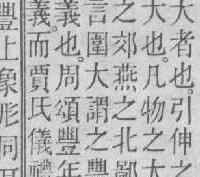 大者也。引伸之
大也。凡物之大
之郊燕之北鄙
言圍大謂之豐
義也。周頌豐年
義。而賈氏儀禮
豐上象形同